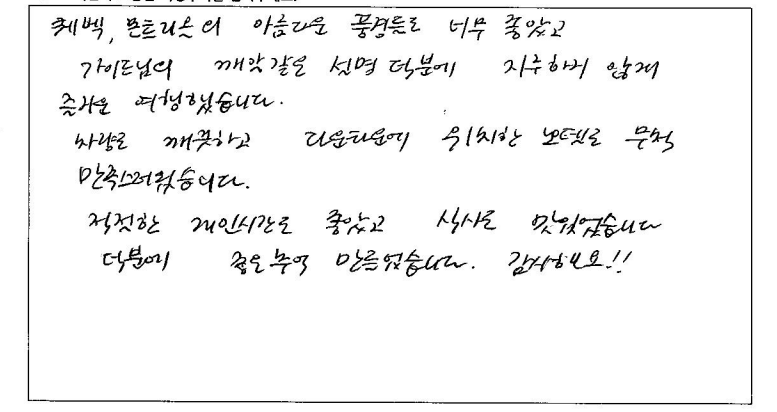 퀘벡, 몬트리온의 아름다운 풍경들로 너무 좋았고
가이드님의 깨알같은 설명 덕분에 지루하지 않게
즐거운 여행했습니다.
차량도 깨끗하고 다운타운에 위치한 호텔도 무척
만족스러웠습니다.
적절한 개인시간도 좋았고 식사도 맛있었습니다
덕분에 좋은 추억 만들었습니다. 감사해요!!